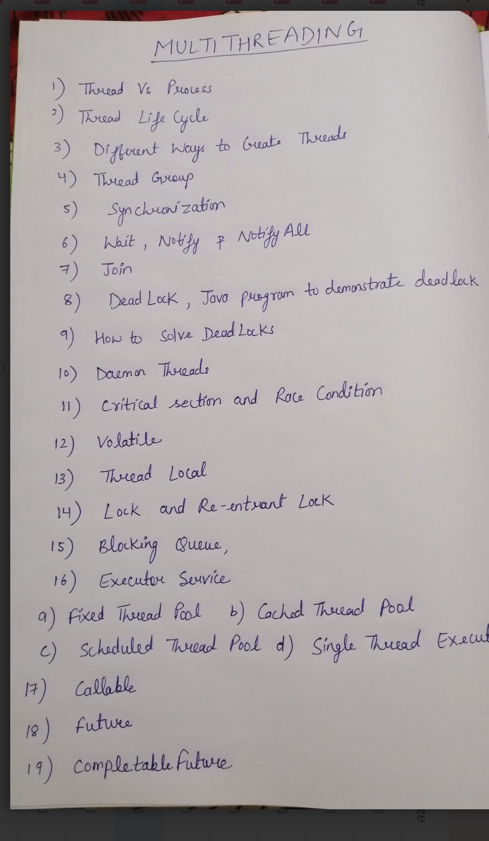 MULTITHREADING
1) Thread Vs Process
2) Thread Life Cycle
3) Different Ways to Create Threads
4) Thread Group
5) Synchronization
6) Wait, Notify & NotifyAll
7) Join
8) DeadLock, Java program to demonstrate deadlock
9) How to solve DeadLocks
10) Daemon Threads
11) Critical section and Race Condition
12) Volatile
13) Thread Local
14) Lock and Re-entrant Lock
15) Blocking Queue,
16) Executor Service
a) Fixed Thread Pool b) Cached Thread Pool
c) Scheduled Thread Pool d) Single Thread Execut
17) Callable
18) Future
19) CompletableFuture